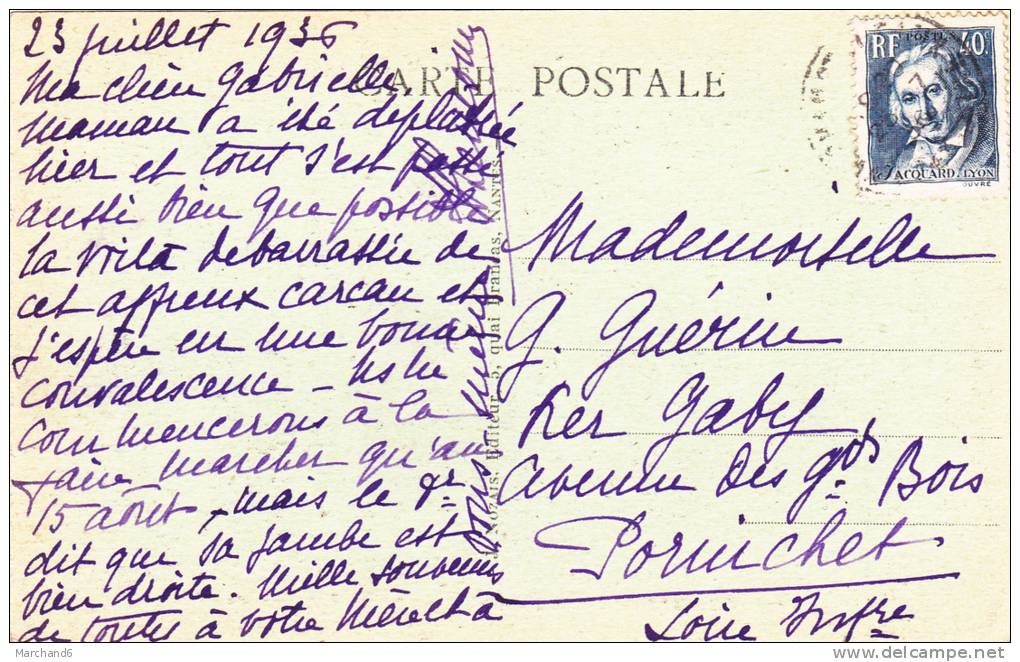 23 juillet 1936
Ma chère Gabrielle
Maman a été déplâtrée
hier et tout s'est passé
aussi bien que possible
la voilà débarrassée de
cet affreux carcan et
j'espère en une bonne
convalescence - Ns ne
commencerons à la
faire marcher qu'au
15 août, mais le dr
dit que sa jambe est
bien droite. Mille souvenirs
de toutes à votre Mère et à
vous même
CARTE POSTALE
Nozais, Editeur, 5, quai Brancas, Nantes
RF POSTES 40c
JACQUARD. LYON
OUVRÉ
Mademoiselle
G. Guérin
Ker Gaby
Avenue des gds Bois
Pornichet
Loire Infre
delcampe.net
Marchand6